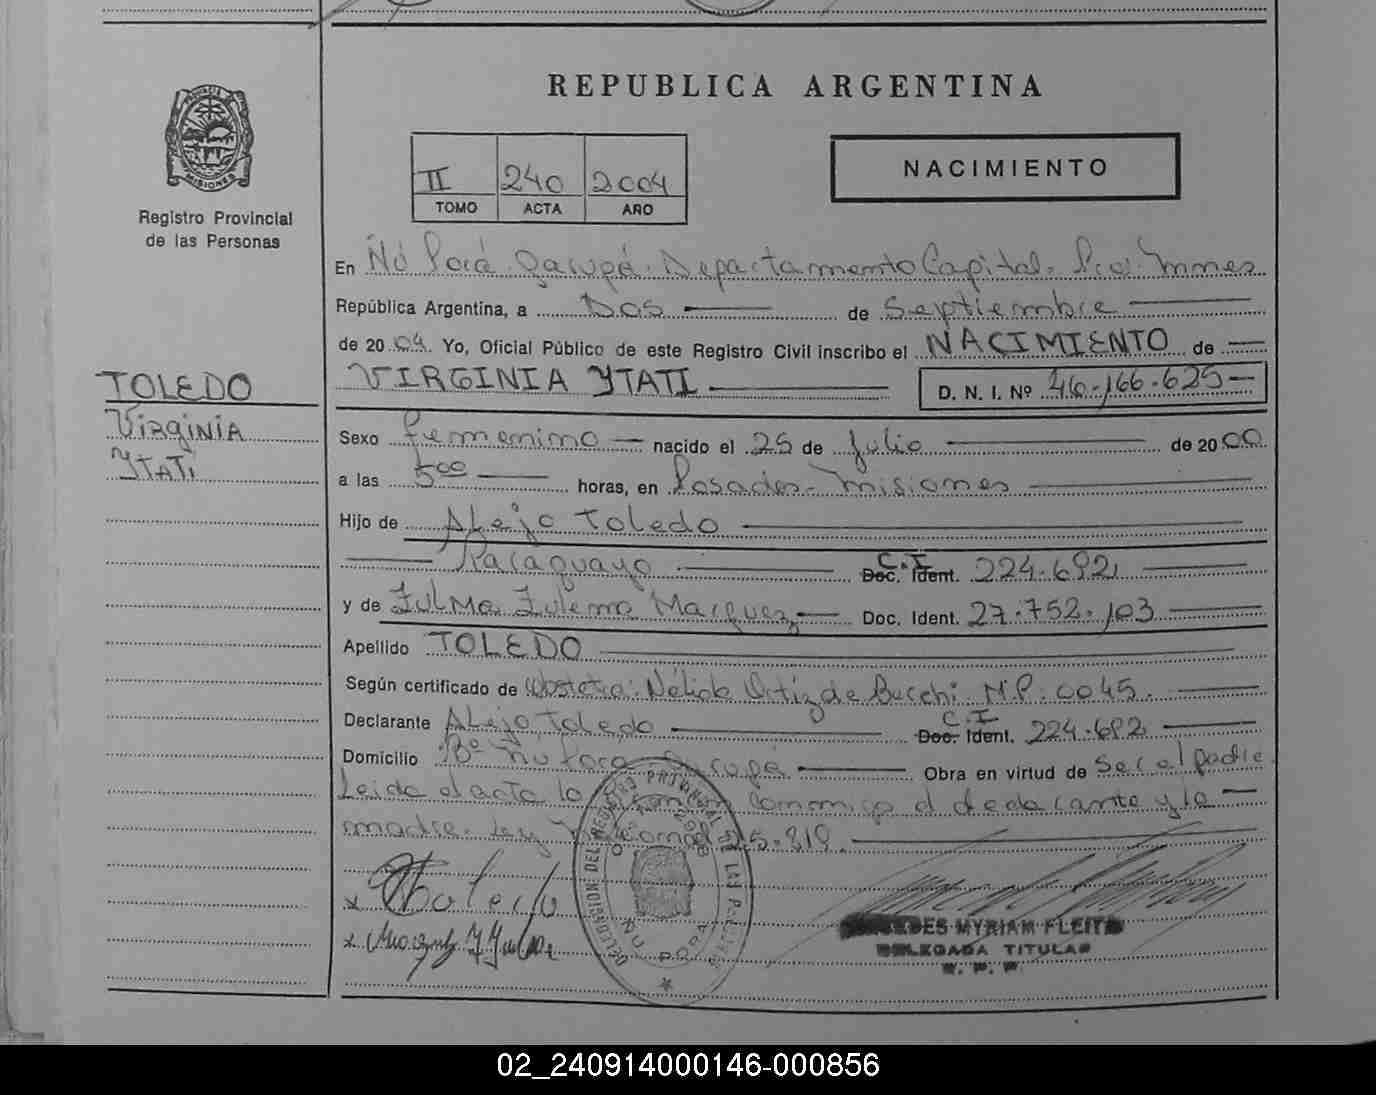 REPUBLICA ARGENTINA
NACIMIENTO
II 240 2004
TOMO ACTA AÑO
PROVINCIA DE MISIONES
Registro Provincial
de las Personas
En Ñú Porá. Garupá. Departamento Capital. Pcia. Mnes
República Argentina, a Dos de Septiembre
de 2004. Yo, Oficial Público de este Registro Civil inscribo el NACIMIENTO de
VIRGINIA YTATI D. N. I. Nº 46.166.625
TOLEDO
Virginia
YTATI
Sexo femenino nacido el 25 de Julio de 2000
a las 5 00 horas, en Posadas - Misiones
Hijo de Alejo Toledo
Paraguayo C.I Doc. Ident. 224.692
y de Zulma Zulema Marquez Doc. Ident. 27.752.103
Apellido TOLEDO
Según certificado de Obstetra: Nélida Ortiz de Bucchi M.P. 0045.
Declarante Alejo Toledo C.I Doc. Ident. 224.692
Domicilio Bº Ñu Pora Garupá Obra en virtud de Ser el padre.
Leida el acta la conmigo el declarante y la
madre. Ley 25.819.
Toledo
DELEGACION DEL REGISTRO PROVINCIAL DE LAS PERSONAS
ÑU PORA
MYRIAM FLEITA
DELEGADA TITULAR
02_240914000146-000856